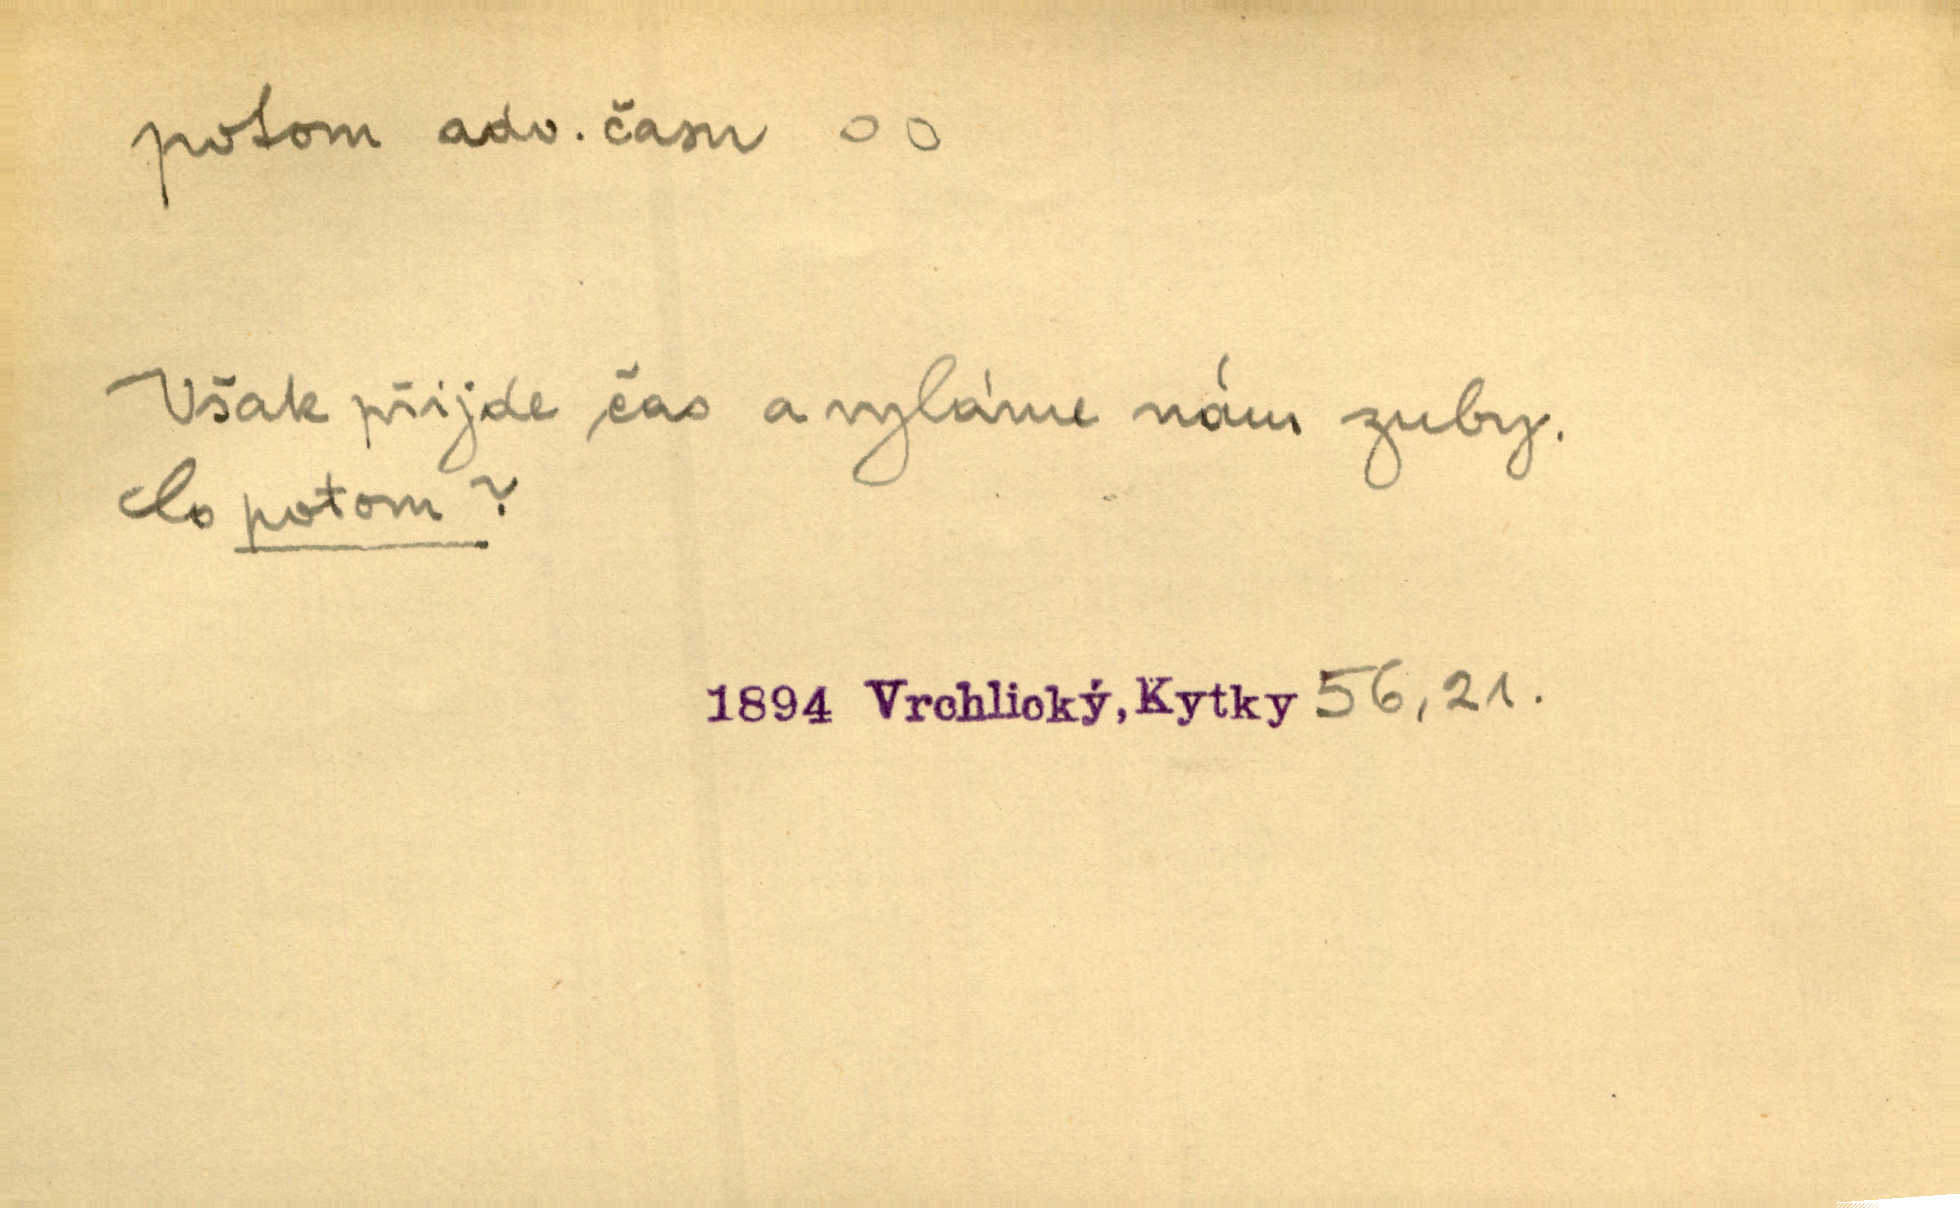 potom adv. času oo
Však přijde čas a vyláme nám zuby.
Co potom?
1894 Vrchlický, Kytky 56, 21.